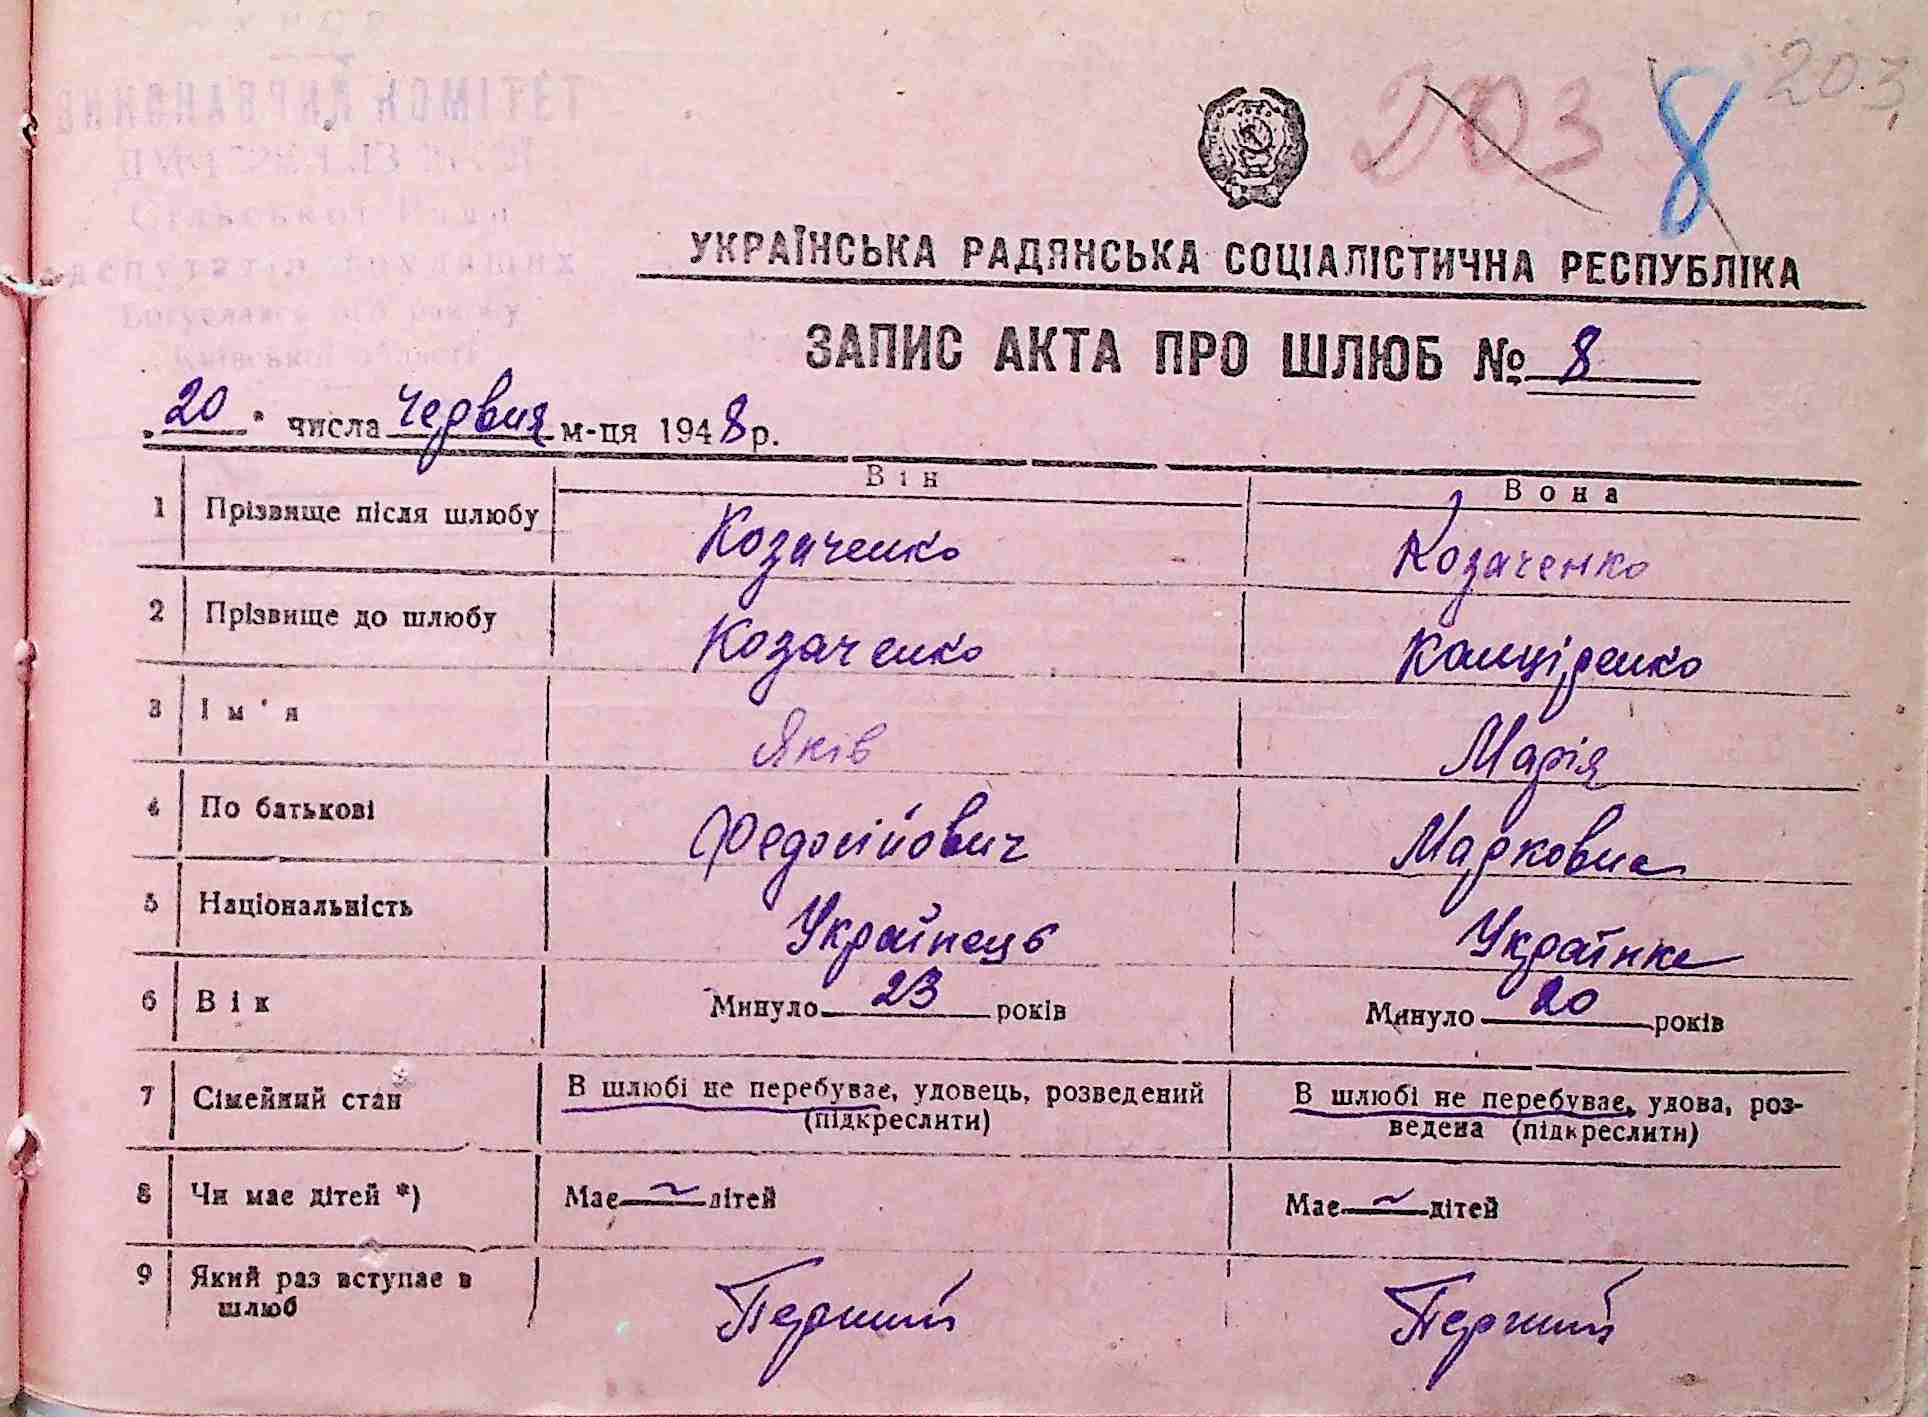 203 8 203
УКРАЇНСЬКА РАДЯНСЬКА СОЦІАЛІСТИЧНА РЕСПУБЛІКА
ЗАПИС АКТА ПРО ШЛЮБ № 8
„20" числа червня м-ця 1948 р.
Він Вона
1 Прізвище після шлюбу Козаченко Козаченко
2 Прізвище до шлюбу Козаченко Канціренко
3 Ім'я Яків Марія
4 По батькові Федосійович Марковна
5 Національність Українець Українка
6 Вік Минуло 23 років Минуло 20 років
7 Сімейний стан В шлюбі не перебуває, удовець, розведений В шлюбі не перебуває, удова, роз-
(підкреслити) ведена (підкреслити)
8 Чи має дітей *) Має ~ дітей Має ~ дітей
9 Який раз вступає в Перший Перший
шлюб